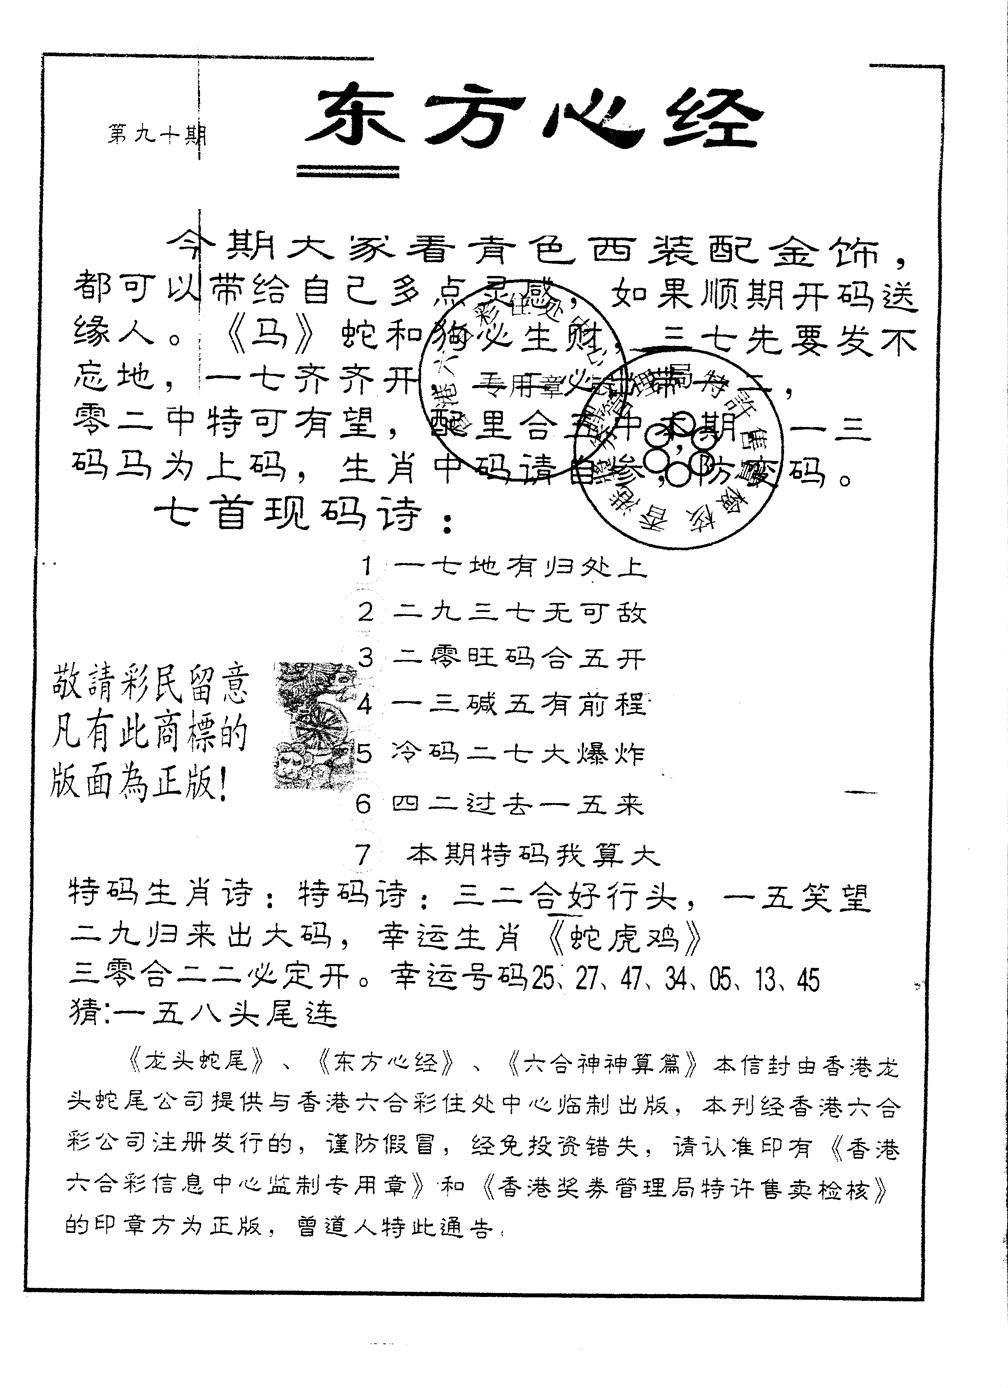 第九十期
东方心经
今期大家看青色西装配金饰，
都可以带给自己多点灵感，如果顺期开码送
缘人。《马》蛇和狗必生财，三七先要发不
忘地，一七齐齐开，二二必出带一二，
零二中特可有望，配里合五中本期，一三
码马为上码，生肖中码请自参，防变码。
七首现码诗：
1 一七地有归处上
2 二九三七无可敌
3 二零旺码合五开
4 一三碱五有前程
5 冷码二七大爆炸
6 四二过去一五来
7 本期特码我算大
敬請彩民留意
凡有此商標的
版面為正版！
特码生肖诗：特码诗：三二合好行头，一五笑望
二九归来出大码，幸运生肖《蛇虎鸡》
三零合二二必定开。幸运号码25、27、47、34、05、13、45
猜:一五八头尾连
《龙头蛇尾》、《东方心经》、《六合神神算篇》本信封由香港龙
头蛇尾公司提供与香港六合彩住处中心临制出版，本刊经香港六合
彩公司注册发行的，谨防假冒，经免投资错失，请认准印有《香港
六合彩信息中心监制专用章》和《香港奖券管理局特许售卖检核》
的印章方为正版，曾道人特此通告.
香港六合彩住处中心
专用章
香港獎券管理局特許售賣檢核